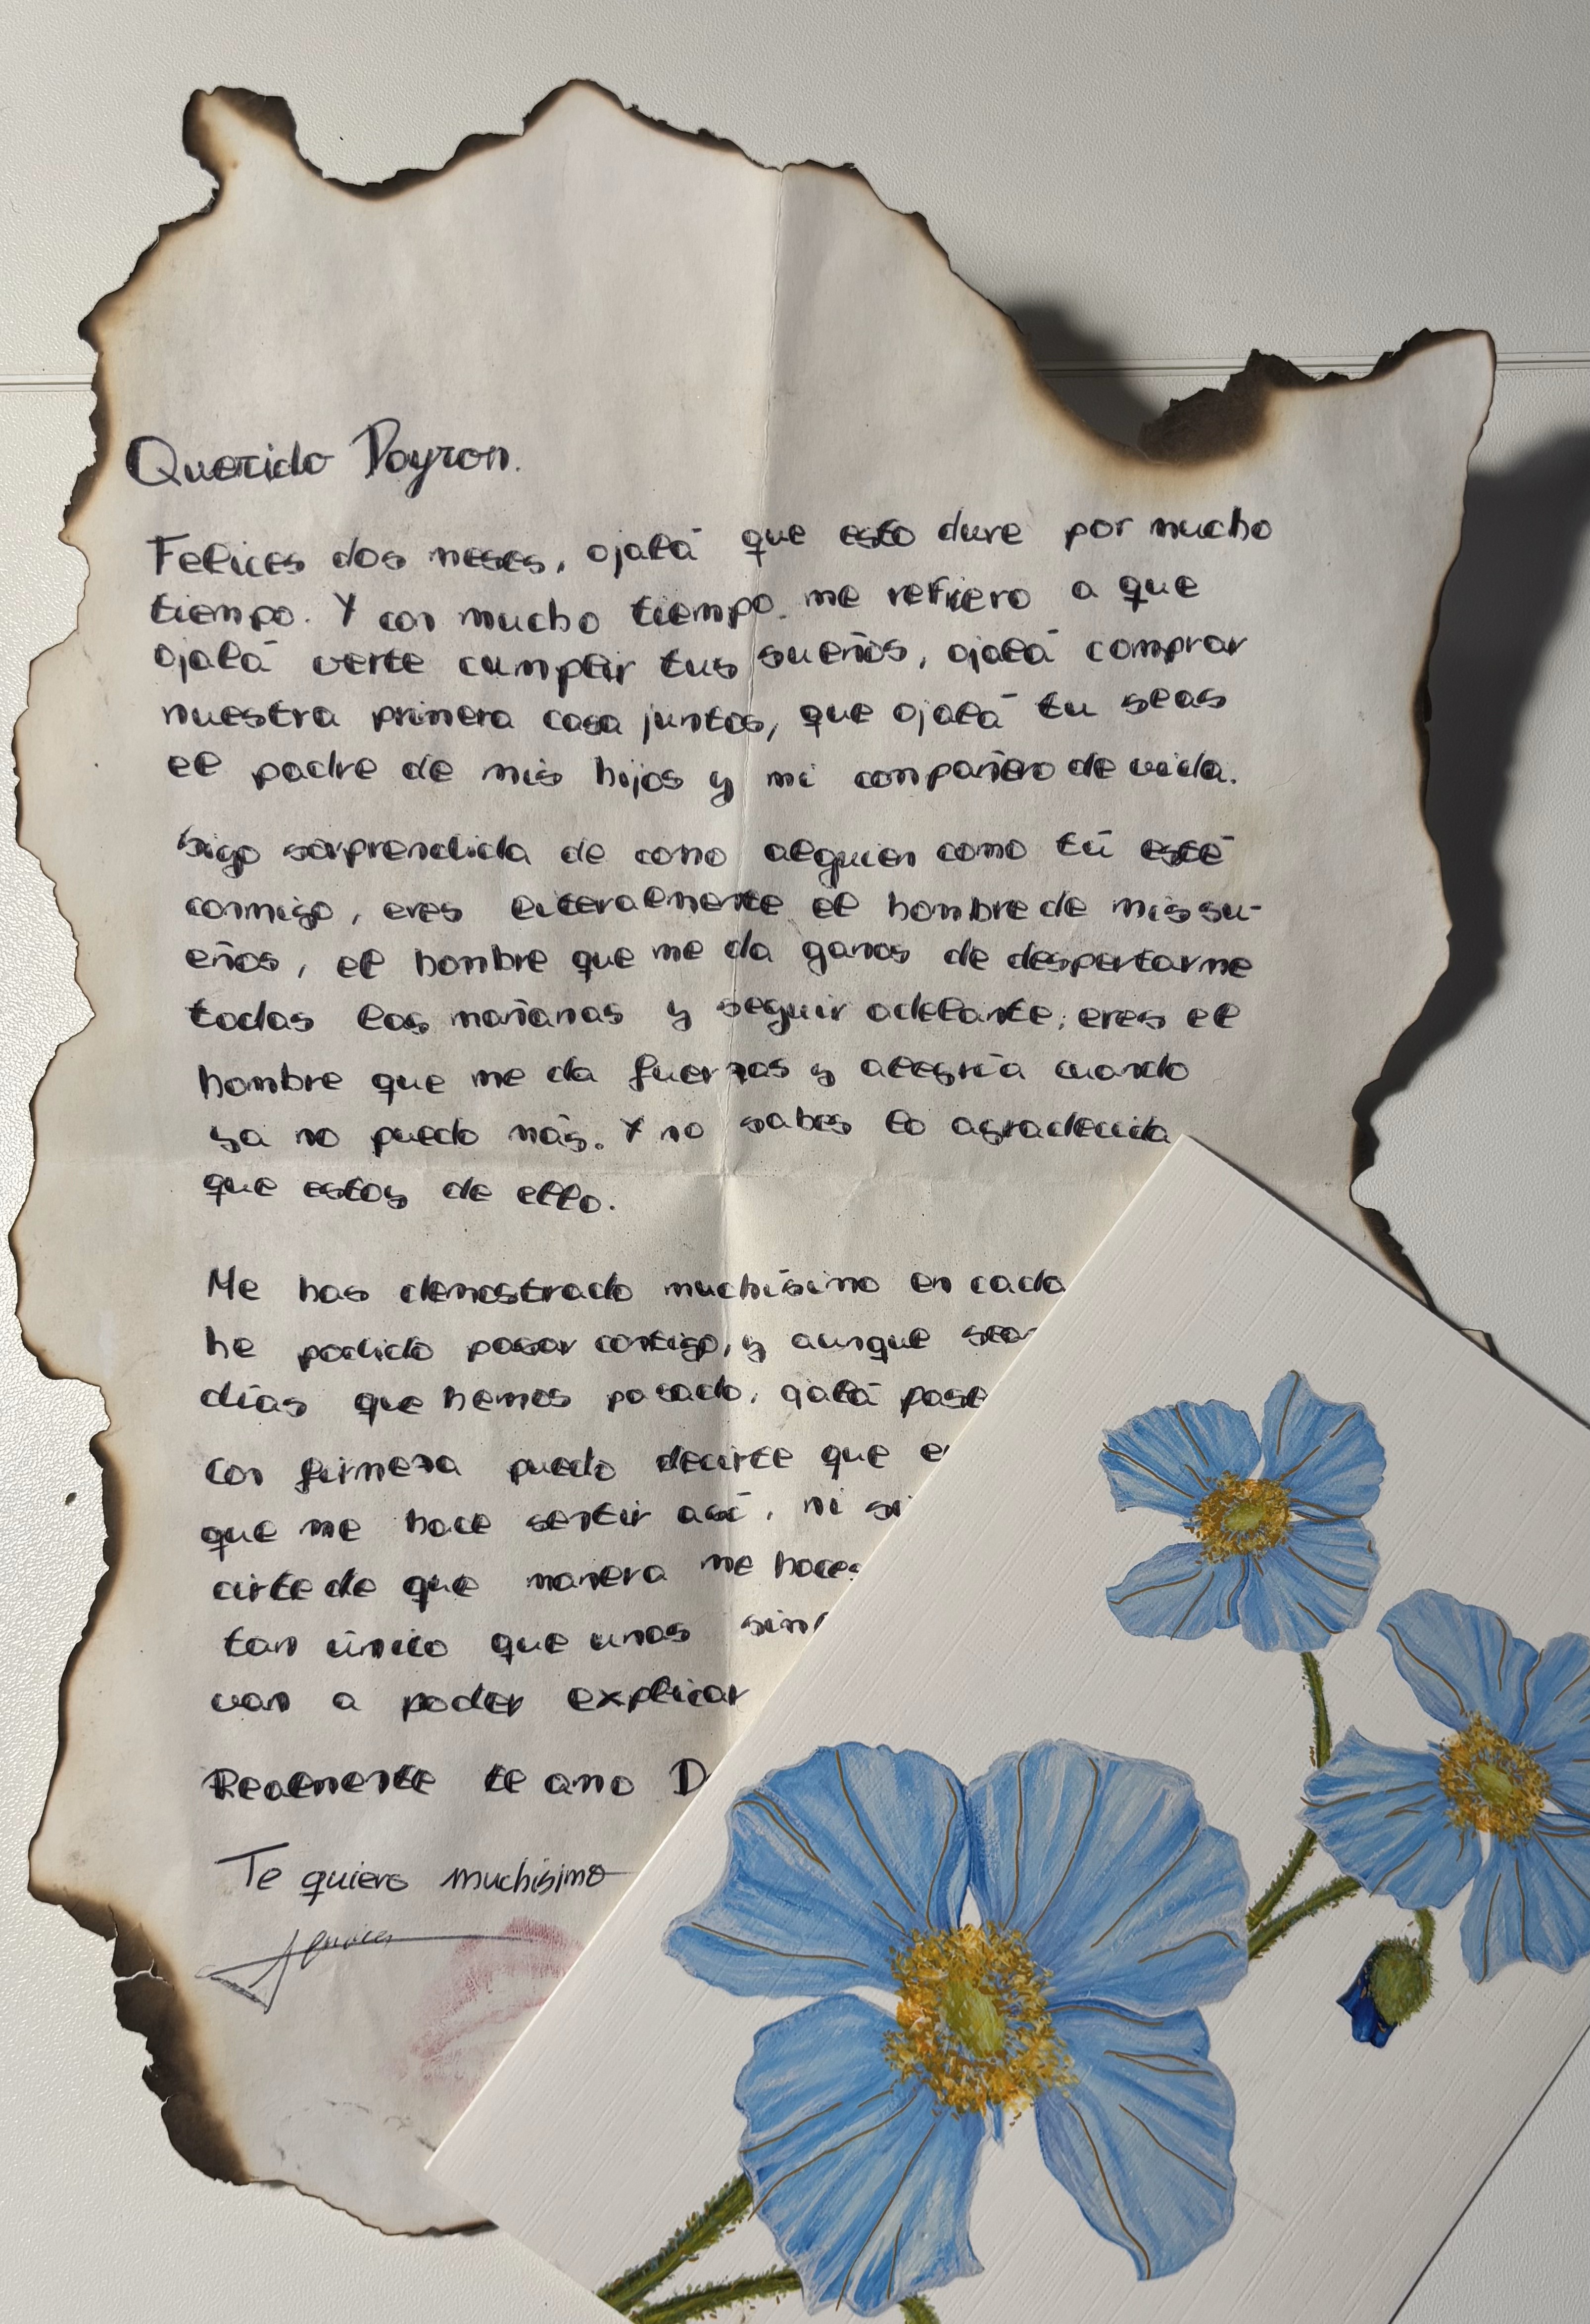 Querido Dayron.
Felices dos meses, ojalá que esto dure por mucho
tiempo. Y con mucho tiempo me refiero a que
ojalá verte cumplir tus sueños, ojalá comprar
nuestra primera casa juntos, que ojalá tu seas
el padre de mis hijos y mi compañero de vida.
Sigo sorprendida de como alguien como tú esté
conmigo, eres literalmente el hombre de mis su-
eños, el hombre que me da ganas de despertarme
todas las mañanas y seguir adelante, eres el
hombre que me da fuerzas y alegría cuando
ya no puedo más. Y no sabes lo agradecida
que estoy de ello.
Me has demostrado muchísimo en cada
he podido pasar contigo, y aunque sean
días que hemos pasado, ojalá pase
Con firmeza puedo decirte que
que me hace sentir así, ni si
cirte de que manera me haces
tan único que unas
van a poder explicar
Realmente te amo D
Te quiero muchísimo